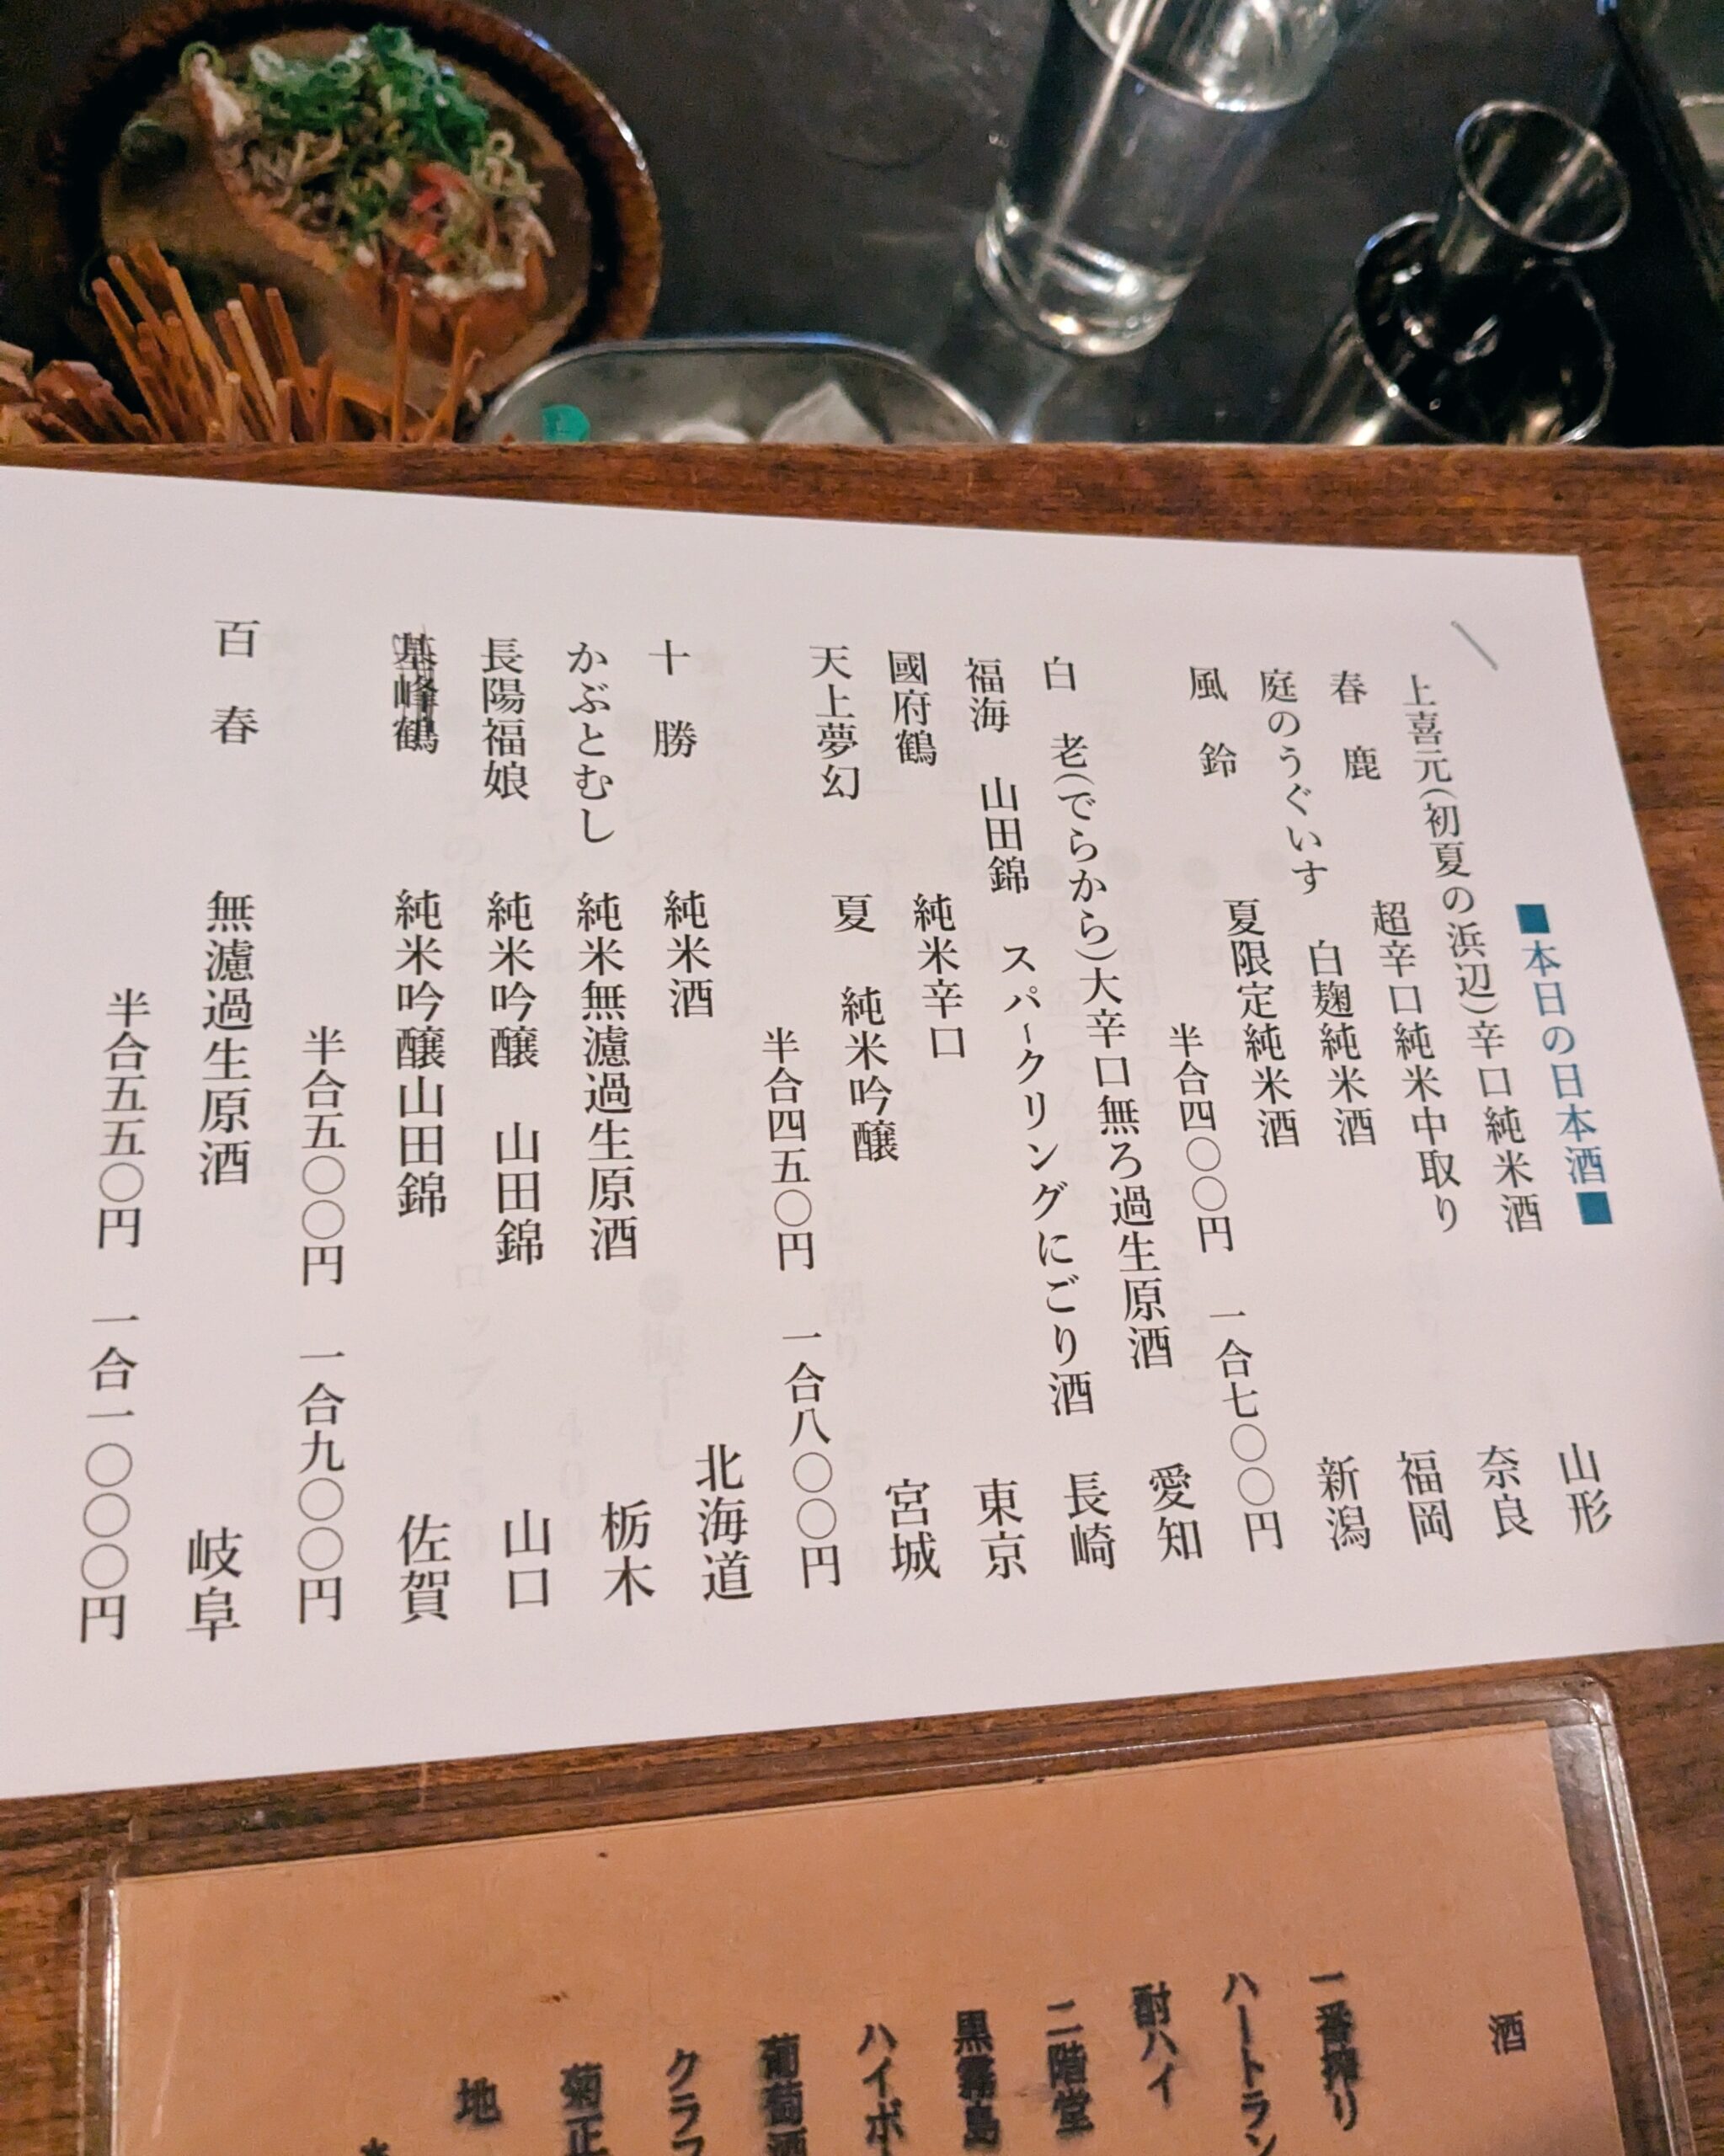 ■本日の日本酒■
上喜元(初夏の浜辺)辛口純米酒 山形
春 鹿 超辛口純米中取り 奈良
庭のうぐいす 白麹純米酒 福岡
風 鈴 夏限定純米酒 新潟
半合四〇〇円 一合七〇〇円
白 老(でらから)大辛口無ろ過生原酒 愛知
福海 山田錦 スパークリングにごり酒 長崎
國府鶴 純米辛口 東京
天上夢幻 夏 純米吟醸 宮城
半合四五〇円 一合八〇〇円
十 勝 純米酒 北海道
かぶとむし 純米無濾過生原酒 栃木
長陽福娘 純米吟醸 山田錦 山口
基峰鶴 純米吟醸山田錦 佐賀
半合五〇〇円 一合九〇〇円
百 春 無濾過生原酒 岐阜
半合五五〇円 一合一〇〇〇円
酒
一番搾り
ハートラン
酎ハイ
二階堂
黒霧島
ハイボー
葡萄酒
クラフ
菊正
地